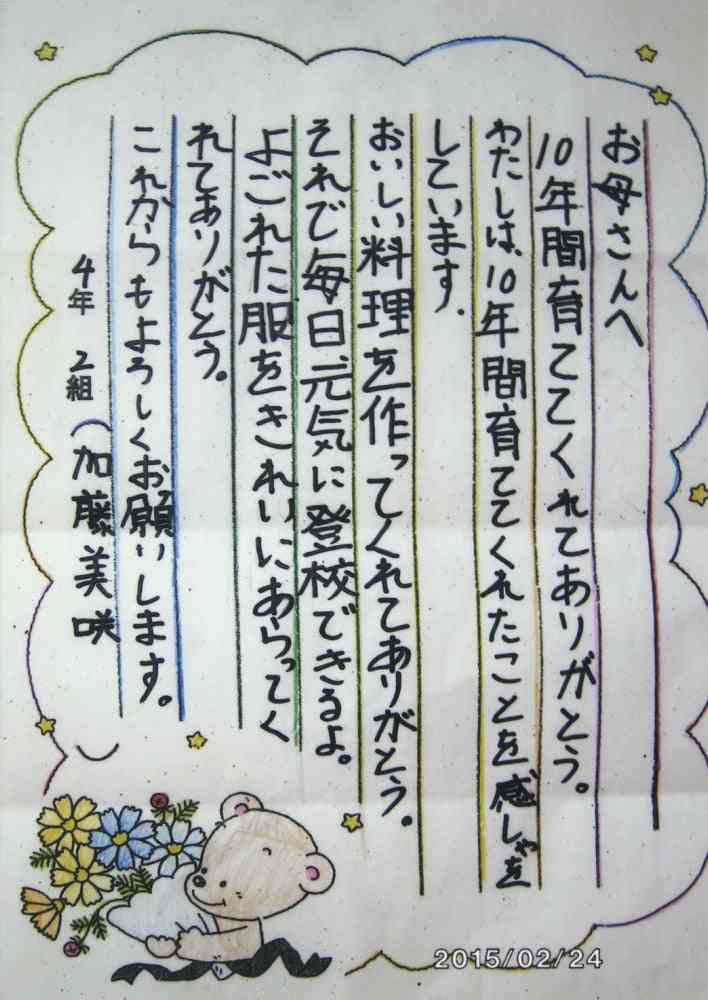 お母さんへ
10年間育ててくれてありがとう。
わたしは、10年間育ててくれたことを感しゃを
しています.
おいしい料理を作ってくれてありがとう。
それで毎日、元気に登校できるよ。
よごれた服をきれいにあらってく
れてありがとう。
これからもよろしくお願いします。
4年 2組(加藤美咲)
2015/02/24